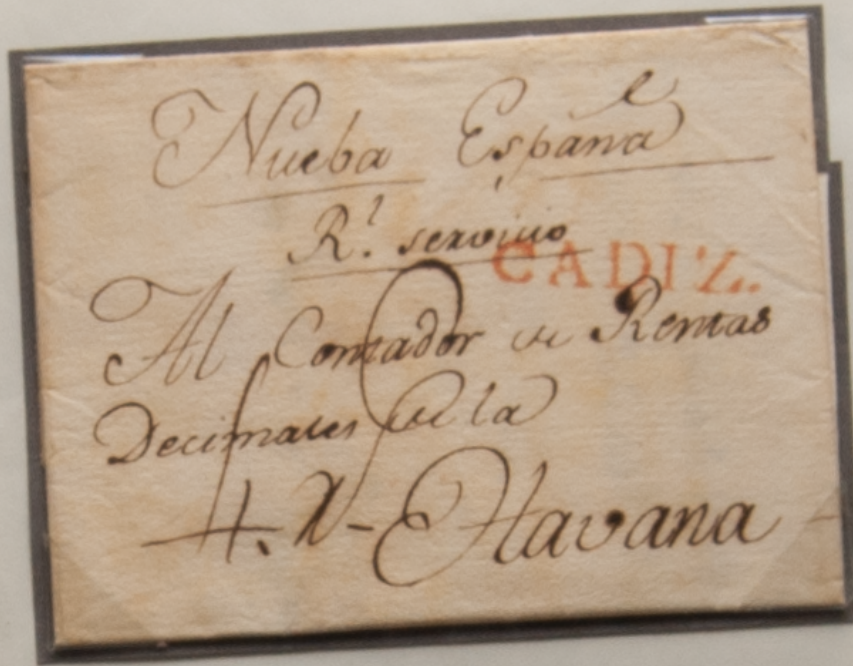 Nueba España
Rl. servicio
CADIZ.
Al Contador de Rentas
Decimales de la
Havana